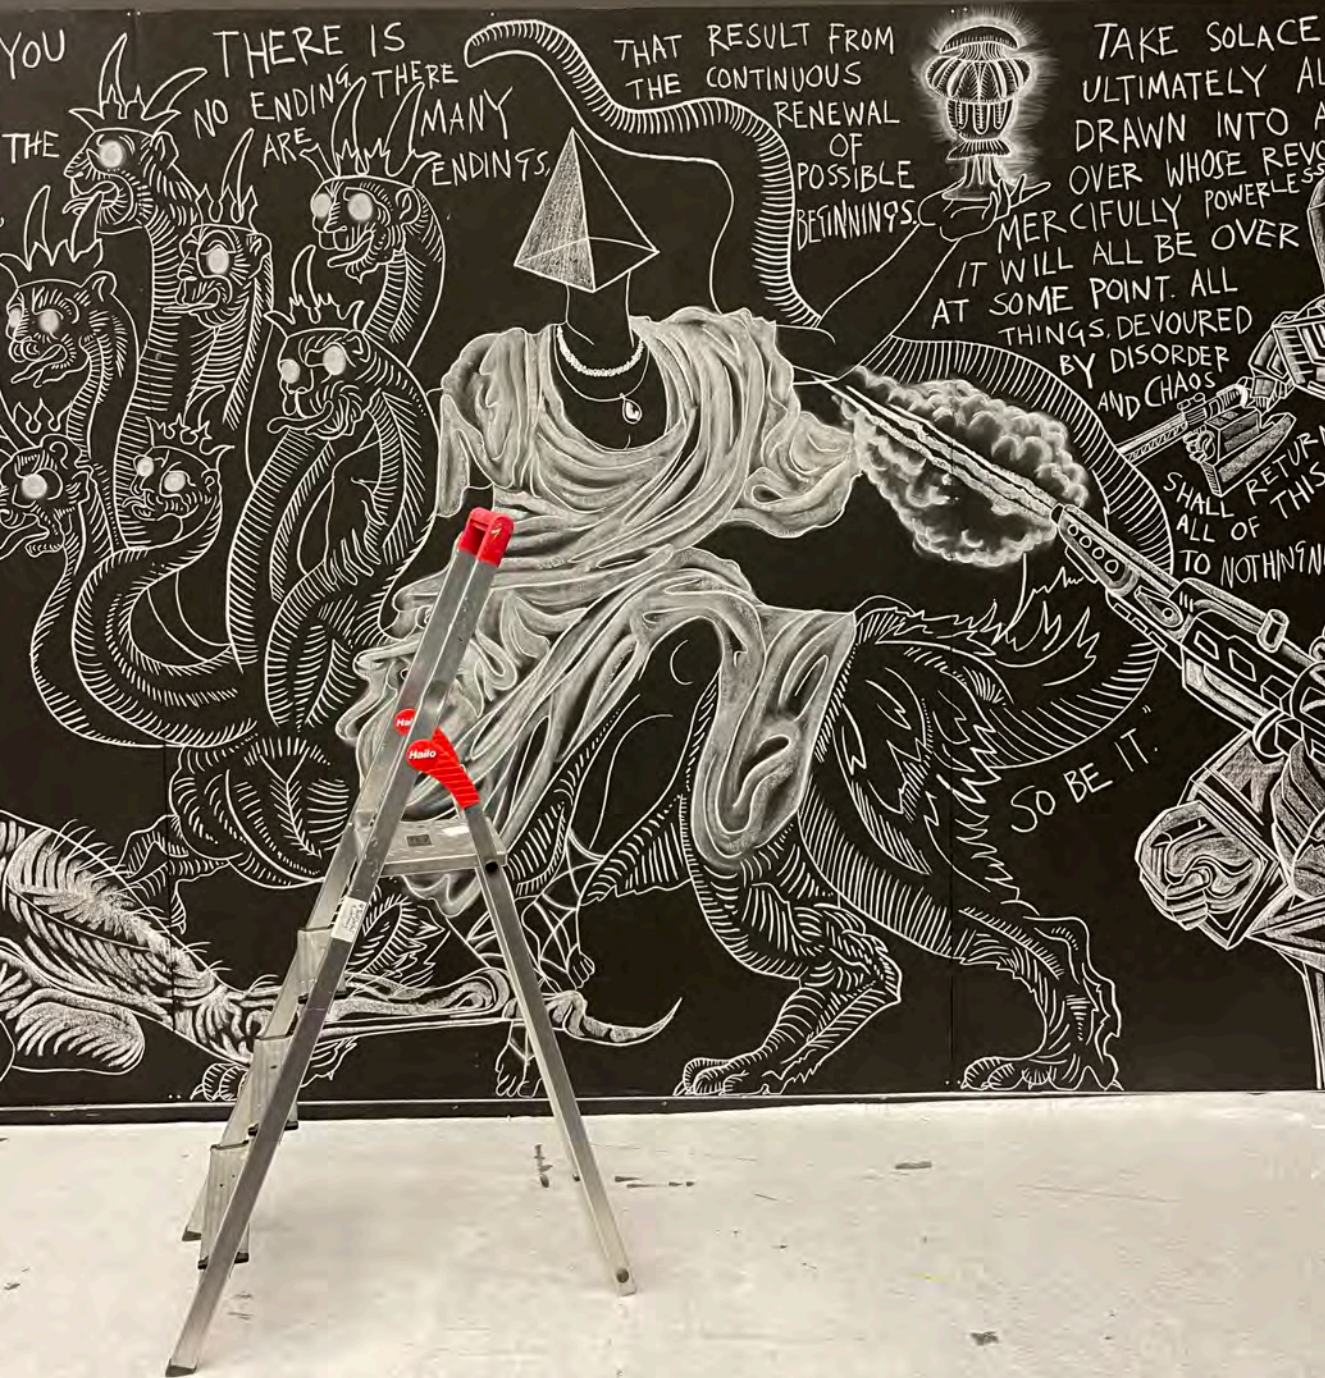 YOU
THE
THERE IS
NO ENDING, THERE
ARE MANY
ENDINGS,
THAT RESULT FROM
THE CONTINUOUS
RENEWAL
OF
POSSIBLE
BEGINNINGS.
TAKE SOLACE
ULTIMATELY
DRAWN INTO
OVER WHOSE
MERCIFULLY POWERLESS
IT WILL ALL BE OVER
AT SOME POINT. ALL
THINGS, DEVOURED
BY DISORDER
AND CHAOS
SHALL RETURN
ALL OF THIS
TO
SO BE IT."
Hailo